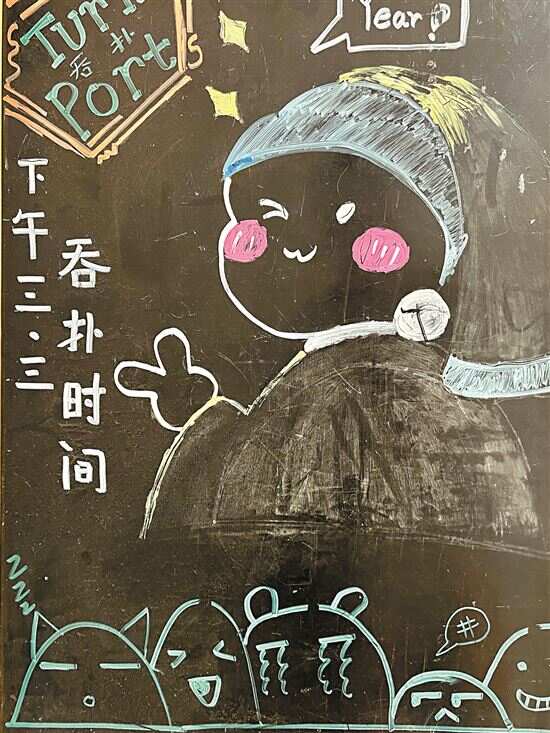 Turn
吞扑
Port
Year!
下午三·三
吞扑时间
T
zzz
#